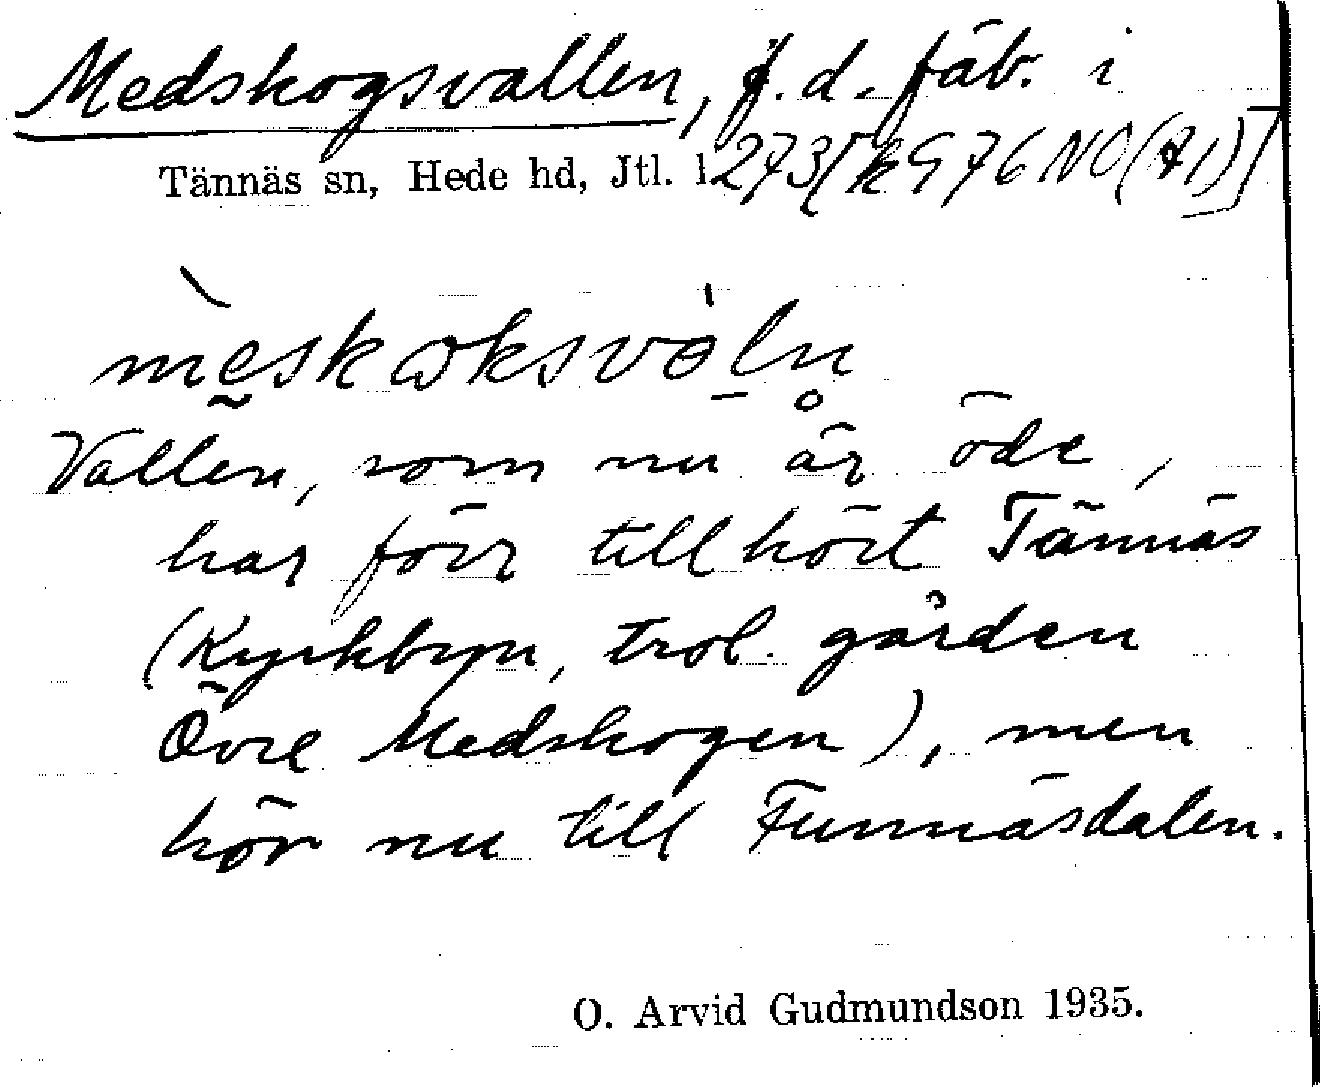 Medskogsvallen, f. d. fäb. i
Tännäs sn, Hede hd, Jtl. l. 273[k976NO(A1)]
Vallen, som nu är öde,
har förr tillhört Tännäs
(Kyrkbyn, trol. gården
Övre Medskogen), men
hör nu till Funnäsdalen.
O. Arvid Gudmundson 1935.